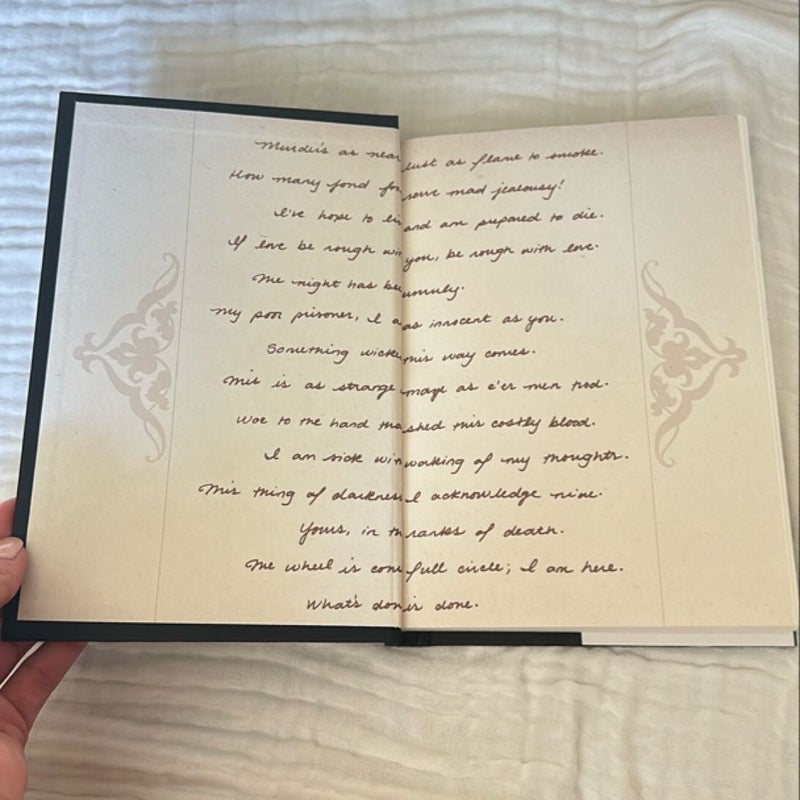 Murder's as near lust as flame to smoke.
How many fond foo serve mad jealousy!
I've hope to li and am prepared to die.
If love be rough wi you, be rough with love.
The night has be unruly.
My poor prisoner, I a as innocent as you.
Something wicke this way comes.
This is as strange maze as e'er men trod.
Woe to the hand tha shed this costly blood.
I am sick wi waking of my thoughts.
This thing of darkness I acknowledge mine.
Yours, in th ranks of death.
The wheel is com full circle; I am here.
What's don is done.